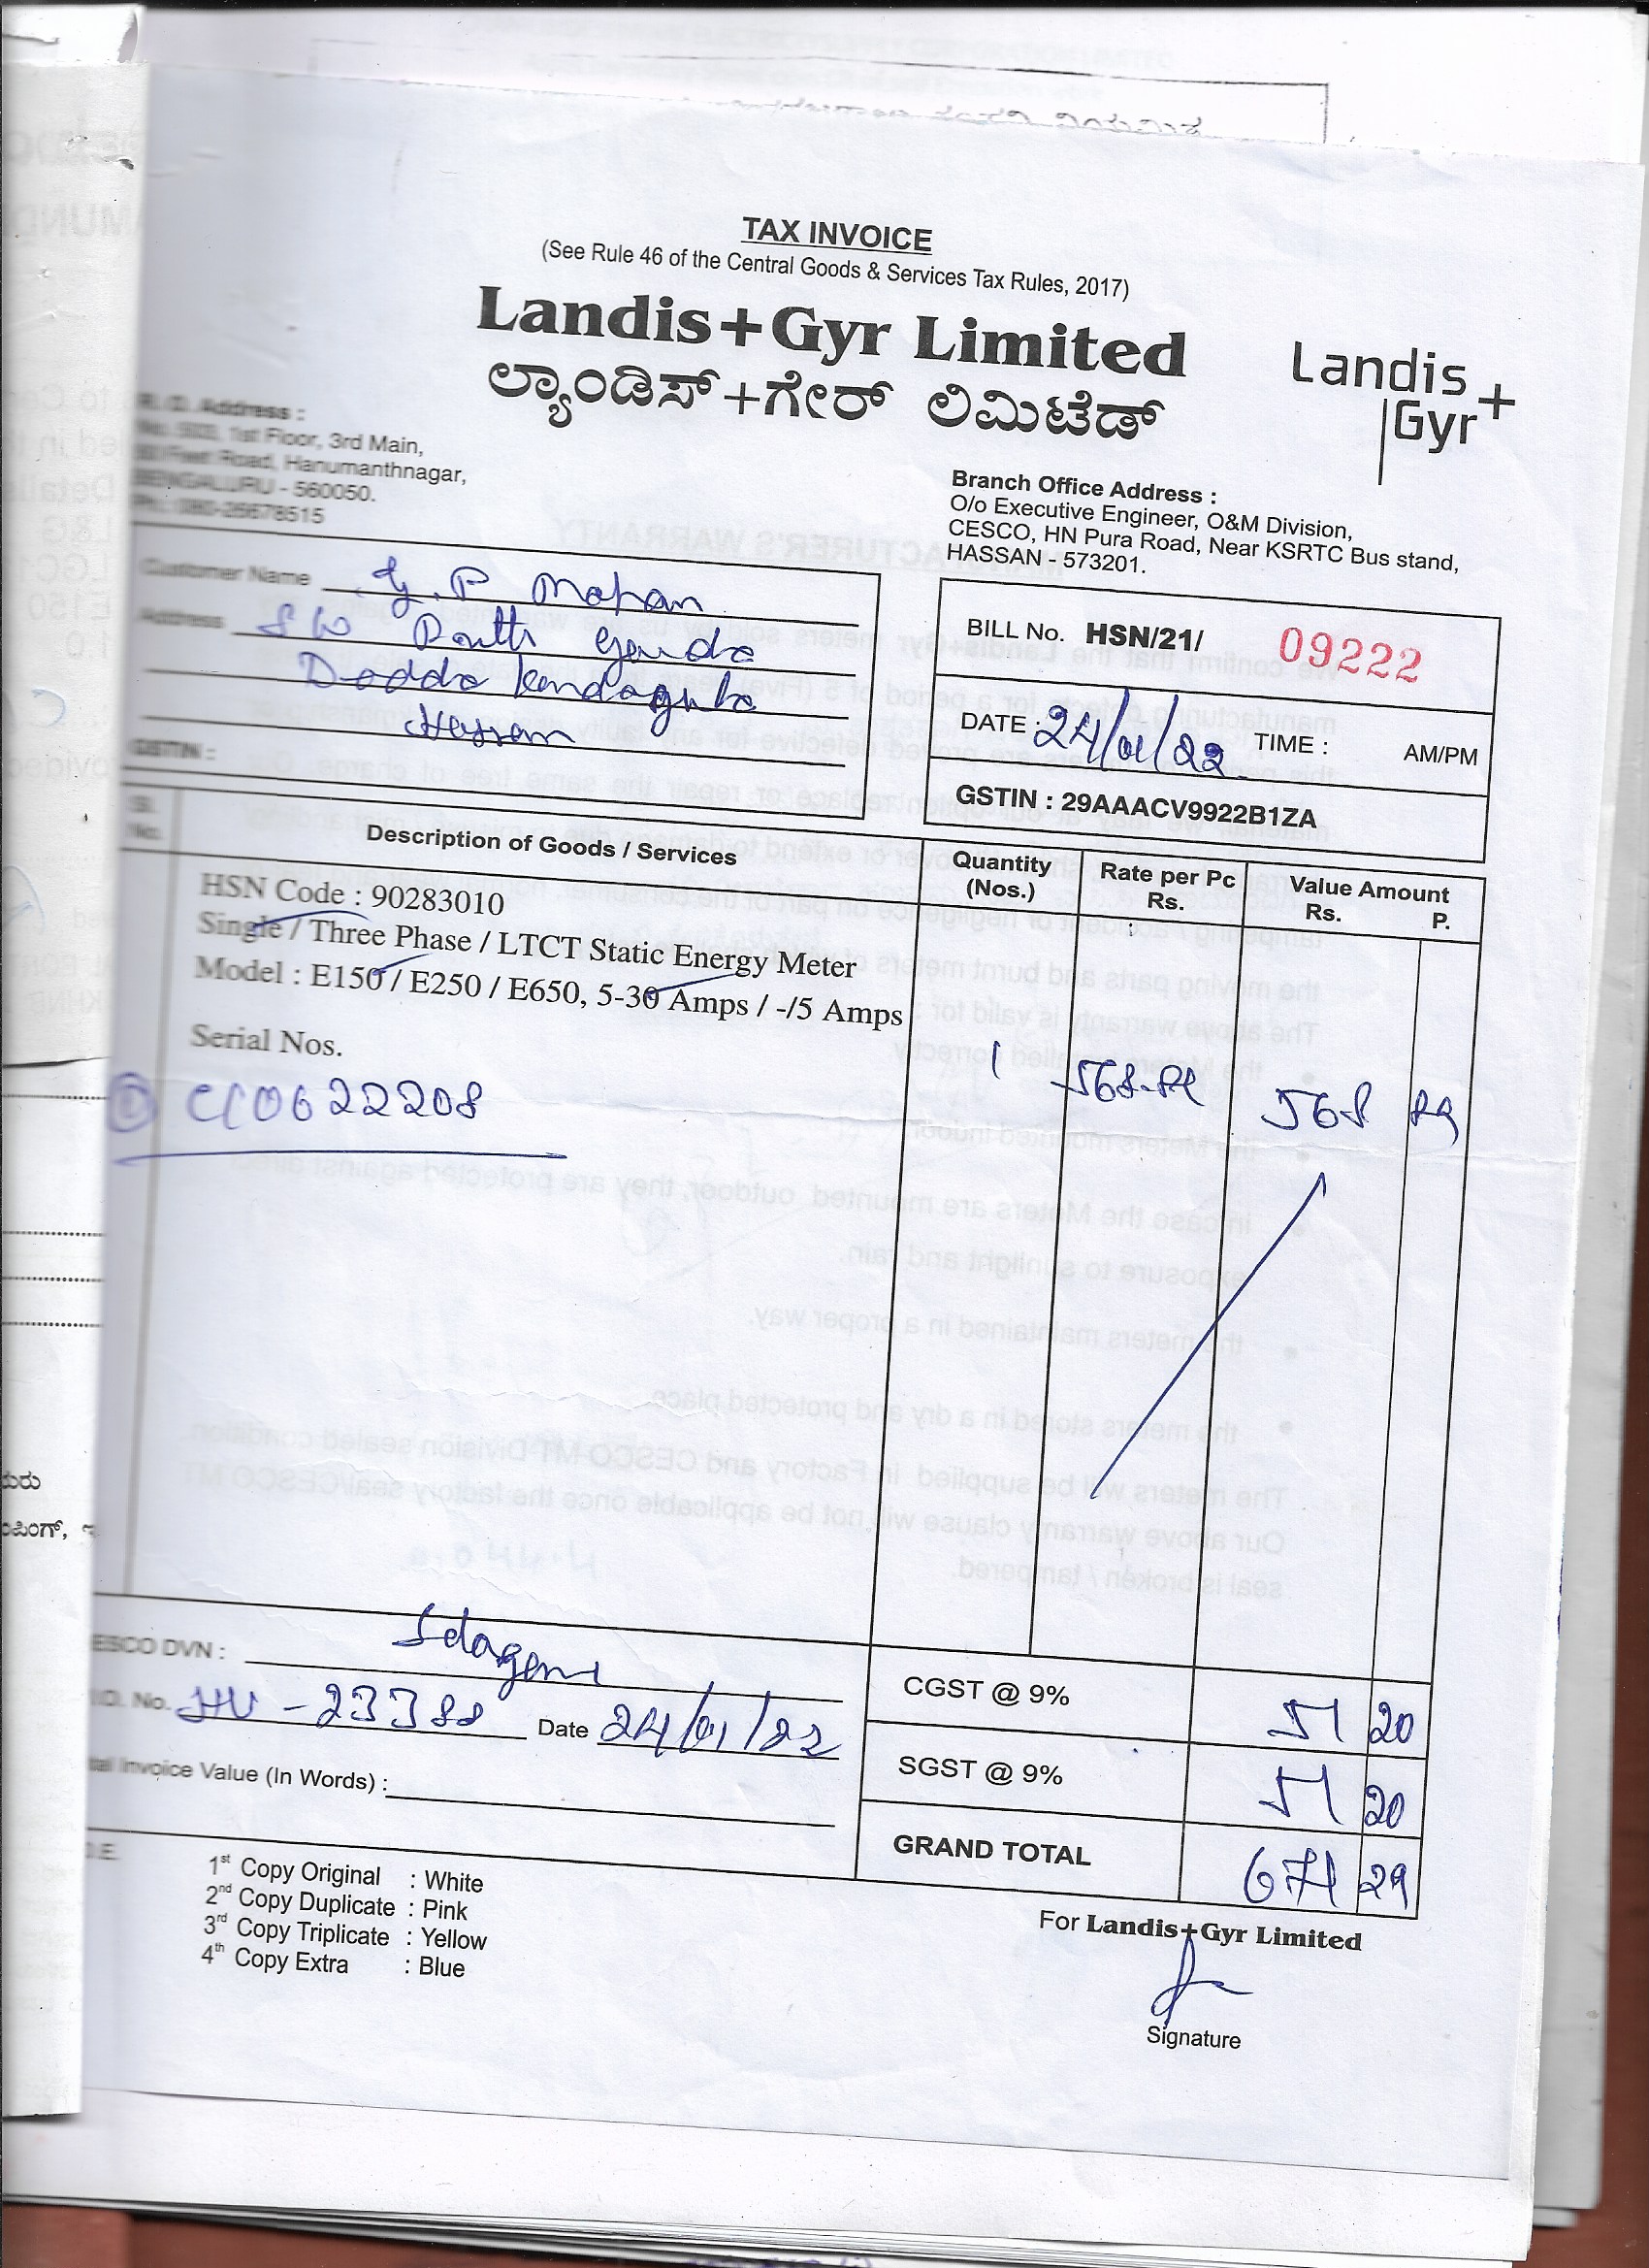 TAX INVOICE
(See Rule 46 of the Central Goods & Services Tax Rules, 2017)
Landis+Gyr Limited
ಲ್ಯಾಂಡಿಸ್+ಗೇರ್ ಲಿಮಿಟೆಡ್
Landis+
Gyr
R. O. Address :
1st Floor, 3rd Main,
Road, Hanumanthnagar,
BENGALURU - 560050.
Ph.: 080-26678515
Branch Office Address :
O/o Executive Engineer, O&M Division,
CESCO, HN Pura Road, Near KSRTC Bus stand,
HASSAN - 573201.
Customer Name G.P Mohan
Address S/o Gowda
Dodda
Hassan
GSTIN :
BILL No. HSN/21/ 09222
DATE : 24/01/22 TIME : AM/PM
GSTIN : 29AAACV9922B1ZA
Sl. No. Description of Goods / Services Quantity (Nos.) Rate per Pc Rs. Value Amount Rs. P.
HSN Code : 90283010
Single / Three Phase / LTCT Static Energy Meter
Model : E150 / E250 / E650, 5-30 Amps / -/5 Amps
Serial Nos.
1 568-89 568 89
0622208
ESCO DVN :
No. 23388 Date 24/01/22
Invoice Value (In Words) :
CGST @ 9% 51 20
SGST @ 9% 51 20
GRAND TOTAL 671 29
1st Copy Original : White
2nd Copy Duplicate : Pink
3rd Copy Triplicate : Yellow
4th Copy Extra : Blue
For Landis+Gyr Limited
Signature